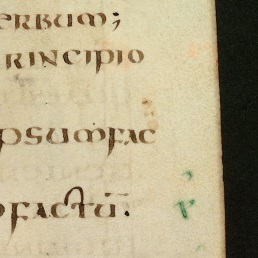 erbum;
rincipio
psumfac
factū.